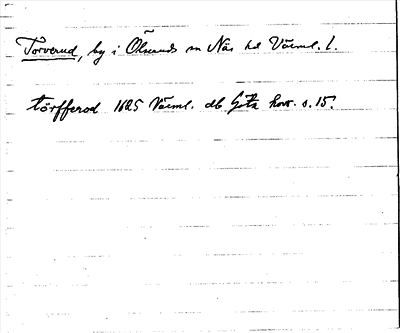 Torverud, by i Ölseruds sn Näs hd Värml. l.
törfferod 1625 Värml. db Göta hovr. s. 15.